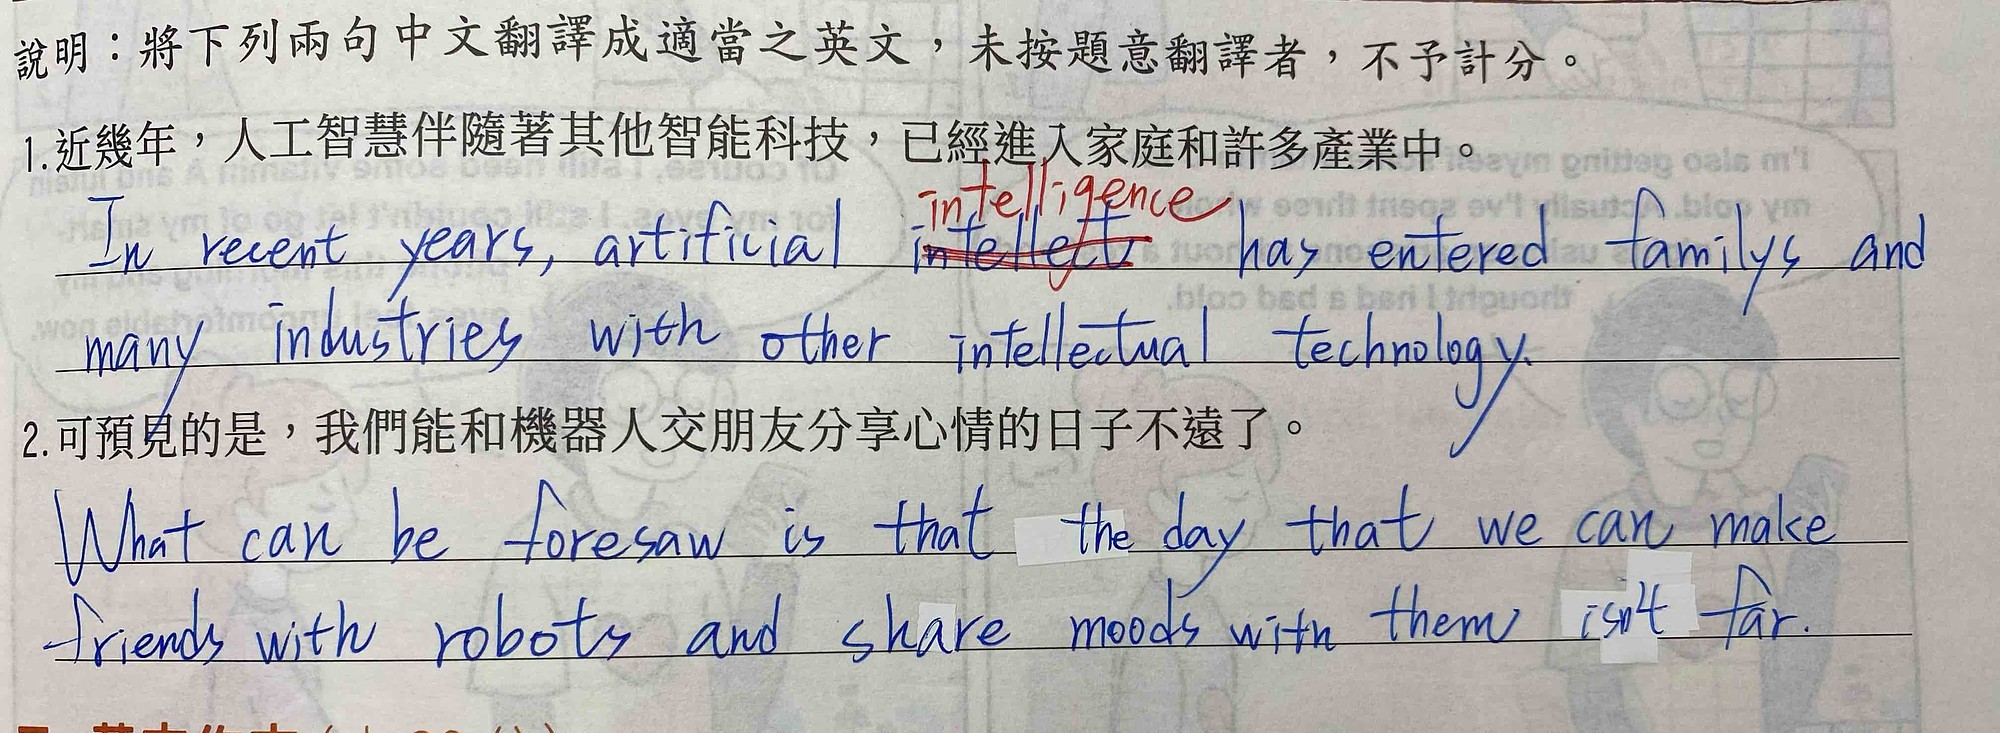 說明：將下列兩句中文翻譯成適當之英文，未按題意翻譯者，不予計分。
1.近幾年，人工智慧伴隨著其他智能科技，已經進入家庭和許多產業中。
intelligence
In recent years, artificial intellect has entered familys and
many industries with other intellectual technology.
2.可預見的是，我們能和機器人交朋友分享心情的日子不遠了。
What can be foresaw is that the day that we can make
friends with robots and share moods with them isn't far.